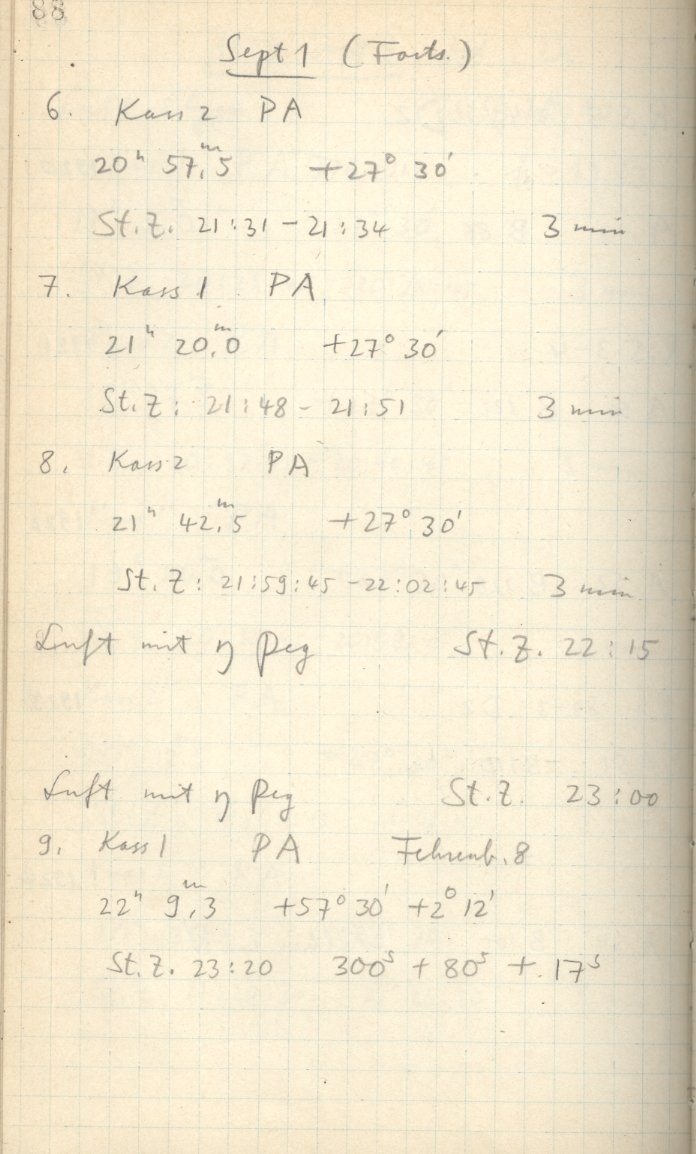 88
Sept 1 (Forts.)
6. Kass 2 PA
20ʰ 57ᵐ,5 +27° 30'
St.Z. 21:31 - 21:34 3 min
7. Kass 1 PA
21ʰ 20ᵐ,0 +27° 30'
St.Z: 21:48 - 21:51 3 min
8. Kass 2 PA
21ʰ 42ᵐ,5 +27° 30'
St.Z: 21:59:45 - 22:02:45 3 min
Luft mit η Peg St.Z. 22:15
Luft mit η Peg St.Z. 23:00
9. Kass 1 PA Fehrenb. 8
22ʰ 9ᵐ,3 +57° 30' +2° 12'
St.Z. 23:20 300ˢ + 80ˢ + 17ˢ